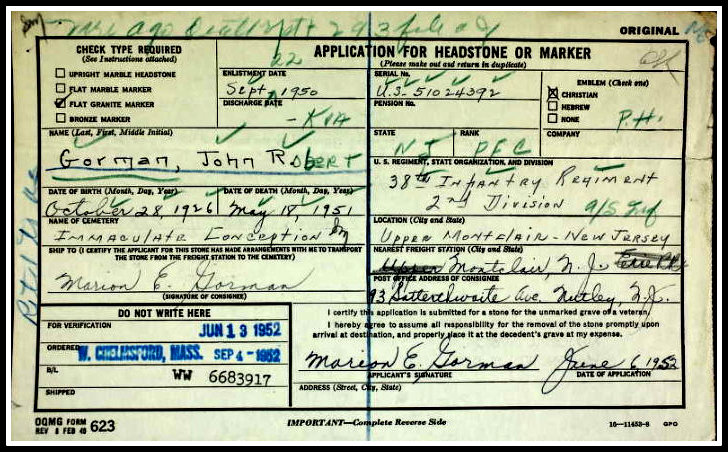 ORIGINAL
CHECK TYPE REQUIRED
(See Instructions attached)
UPRIGHT MARBLE HEADSTONE
FLAT MARBLE MARKER
FLAT GRANITE MARKER
BRONZE MARKER
APPLICATION FOR HEADSTONE OR MARKER
(Please make out and return in duplicate)
OK
ENLISTMENT DATE
22
Sept, 1950
DISCHARGE DATE
- KIA
SERIAL No.
U.S. 51024392
PENSION No.
EMBLEM (Check one)
CHRISTIAN
HEBREW
NONE
P.H.
NAME (Last, First, Middle Initial)
Gorman, John Robert
STATE
NJ
RANK
PFC
COMPANY
U. S. REGIMENT, STATE ORGANIZATION, AND DIVISION
38th Infantry Regiment
2nd Division
DATE OF BIRTH (Month, Day, Year)
October 28, 1926
DATE OF DEATH (Month, Day, Year)
May 18, 1951
NAME OF CEMETERY
Immaculate Conception
LOCATION (City and State)
Upper Montclair - New Jersey
SHIP TO (I CERTIFY THE APPLICANT FOR THIS STONE HAS MADE ARRANGEMENTS WITH ME TO TRANSPORT THE STONE FROM THE FREIGHT STATION TO THE CEMETERY)
Marion E. Gorman
(SIGNATURE OF CONSIGNEE)
NEAREST FREIGHT STATION (City and State)
Upper Montclair, N.J.
POST OFFICE ADDRESS OF CONSIGNEE
93 Satterthwaite Ave. Nutley, N.J.
DO NOT WRITE HERE
FOR VERIFICATION
JUN 13 1952
ORDERED
W. CHELMSFORD, MASS. SEP 4 - 1952
B/L
WW 6683917
SHIPPED
I certify this application is submitted for a stone for the unmarked grave of a veteran.
I hereby agree to assume all responsibility for the removal of the stone promptly upon
arrival at destination, and properly place it at the decedent's grave at my expense.
Marion E. Gorman June 6, 1952
APPLICANT'S SIGNATURE
DATE OF APPLICATION
ADDRESS (Street, City, State)
OQMG FORM
REV 8 FEB 46 623
IMPORTANT—Complete Reverse Side
16—11453-8 GPO